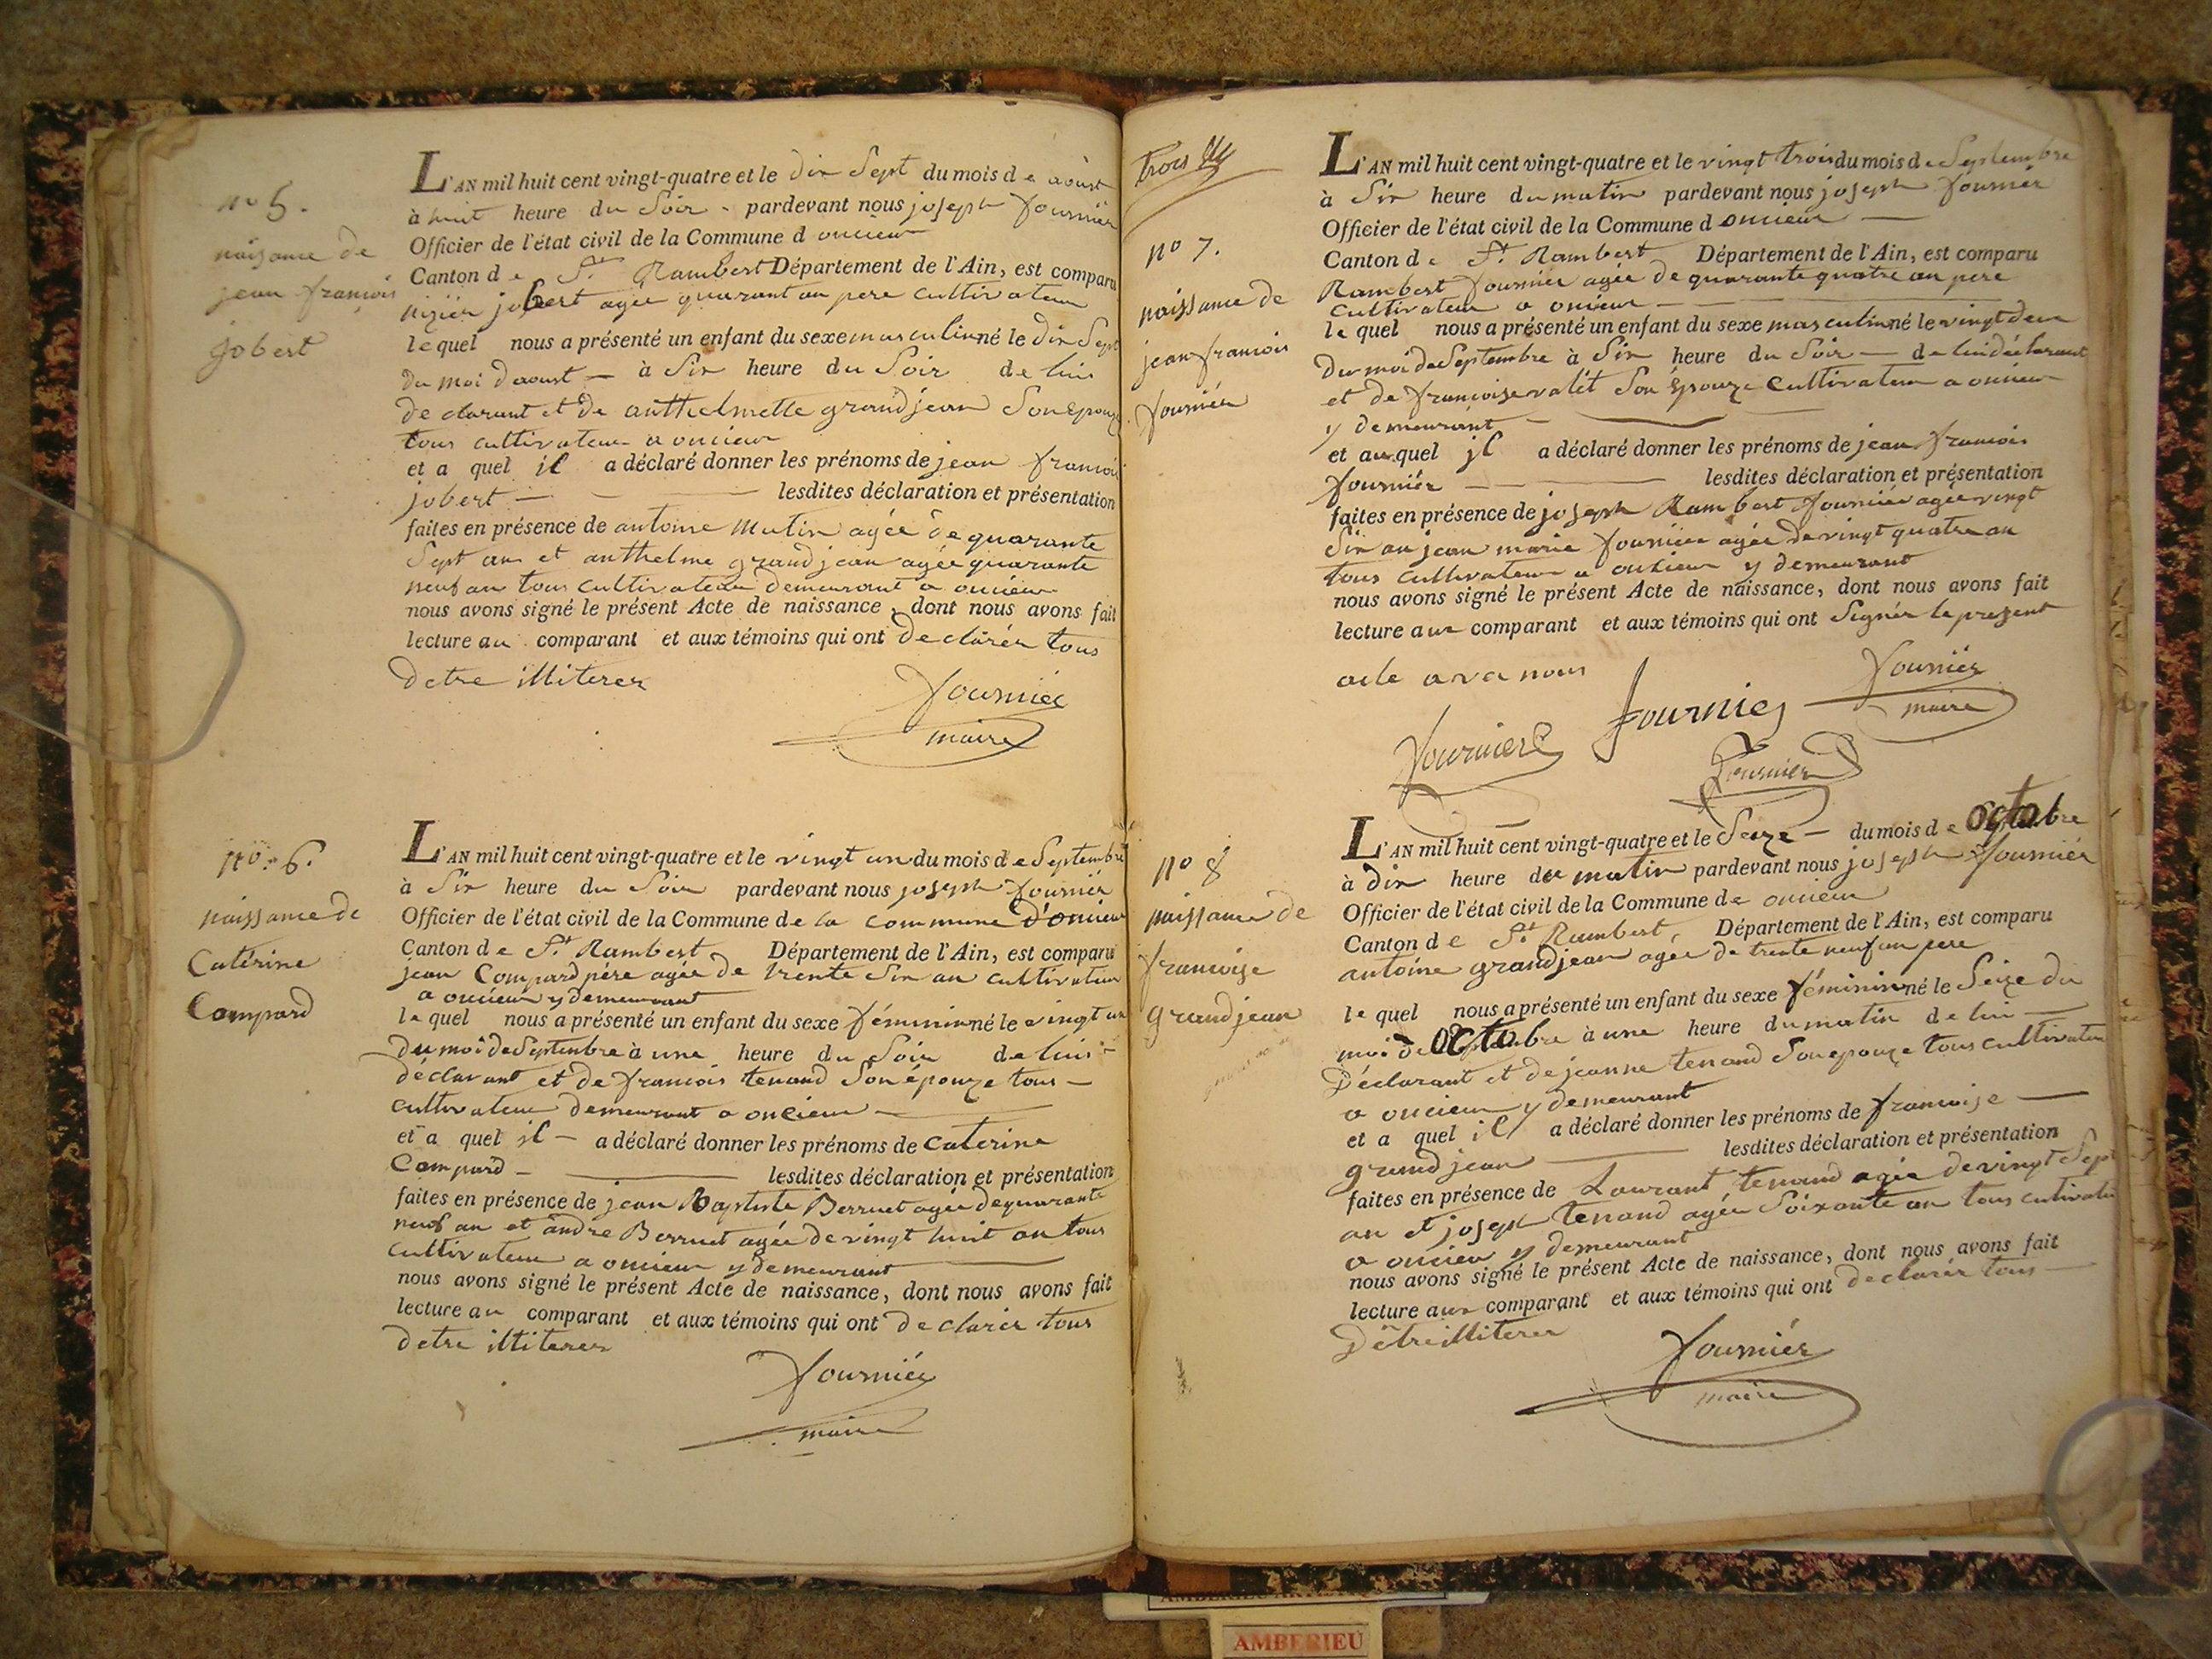 n° 5.
naissance de
jean françois
jobert
L'AN mil huit cent vingt-quatre et le dix Sept du mois de aoust
à huit heure du Soir - pardevant nous joseph fournier
Officier de l'état civil de la Commune d oncieu
Canton de St. Rambert Département de l'Ain, est comparu
nizier jobert agée quarant an pere cultivateur
lequel nous a présenté un enfant du sexe masculin né le dix Sept
du moi daoust — à Six heure du Soir de lui
declarant et de anthelmette grandjean Son Epouze
tous cultivateur a oncieu
et a quel il a déclaré donner les prénoms de jean francois
jobert — — — lesdites déclaration et présentation
faites en présence de antoine Mutin agée de quarante
Sept ans et anthelme grandjean agée quarante
neuf an tous cultivateur demeurant a oncieu
nous avons signé le présent Acte de naissance, dont nous avons fait
lecture au comparant et aux témoins qui ont declarér tous
detre illiterer
fournier
maire
n° 6.
naissance de
Catérine
Compard
L'AN mil huit cent vingt-quatre et le vingt un du mois de Septembre
à Six heure du Soir pardevant nous joseph fournier
Officier de l'état civil de la Commune de la commune d'oncieu
Canton de St. Rambert Département de l'Ain, est comparu
jean Compard pére agée de trente Six an cultivateur
a oncieu y demeurant
le quel nous a présenté un enfant du sexe féminin né le vingt un
du moi de Septembre à une heure du Soir de lui -
déclarant et de francois tenand Son épouze tous —
cultivateur demeurant a oncieu —
et a quel il — a déclaré donner les prénoms de Caterine
Compard — lesdites déclaration et présentation
faites en présence de jean Baptiste Berruet agée de quarante
neuf an et andre Berruet agée de vingt huit an tous
cultivateur a oncieu y demeurant —
nous avons signé le présent Acte de naissance, dont nous avons fait
lecture au comparant et aux témoins qui ont declarér tous
detre illiterer
fournier
maire
trois
n° 7.
naissance de
jean francois
fournier
L'AN mil huit cent vingt-quatre et le vingt trois du mois de Septembre
à Six heure du matin pardevant nous joseph fournier
Officier de l'état civil de la Commune d oncieu —
Canton de St. Rambert Département de l'Ain, est comparu
Rambert fournier agée de quarante quatre an pere
cultivateur a oncieu —
le quel nous a présenté un enfant du sexe masculin né le vingt deux
du moi de Septembre à Six heure du Soir — de lui déclarant
et de francoise valét Son épouze cultivateur a oncieu
y demeurant —
et au quel il a déclaré donner les prénoms de jean francois
fournier — lesdites déclaration et présentation
faites en présence de joseph Rambert fournier agée vingt
Six an jean marie fournier agée de vingt quatre an
tous cultivateur a oncieu y demeurant
nous avons signé le présent Acte de naissance, dont nous avons fait
lecture aux comparant et aux témoins qui ont Signér le present
acte avec nous
fournier
maire
fournier
fournier
fournier
n° 8
naissance de
francoise
grandjean
L'AN mil huit cent vingt-quatre et le Seize — du mois de Octobre
à dix heure du matin pardevant nous joseph fournier
Officier de l'état civil de la Commune de oncieu
Canton de St. Rambert, Département de l'Ain, est comparu
antoine grandjean agée de trente neuf an pere
le quel nous a présenté un enfant du sexe féminin né le Seize du
moi de Octobre à une heure du matin de lui —
Déclarant et de jeanne tenand Son epouze tous cultivateur
a oncieu y demeurant
et a quel il a déclaré donner les prénoms de francoise —
grandjean — lesdites déclaration et présentation
faites en présence de Laurant tenand agée de vingt Sept
an et joseph tenand agée Soixante an tous cultivateur
a oncieu y demeurant
nous avons signé le présent Acte de naissance, dont nous avons fait
lecture aux comparant et aux témoins qui ont declarér tous —
Detre illiterer
fournier
maire
AMBERIEU